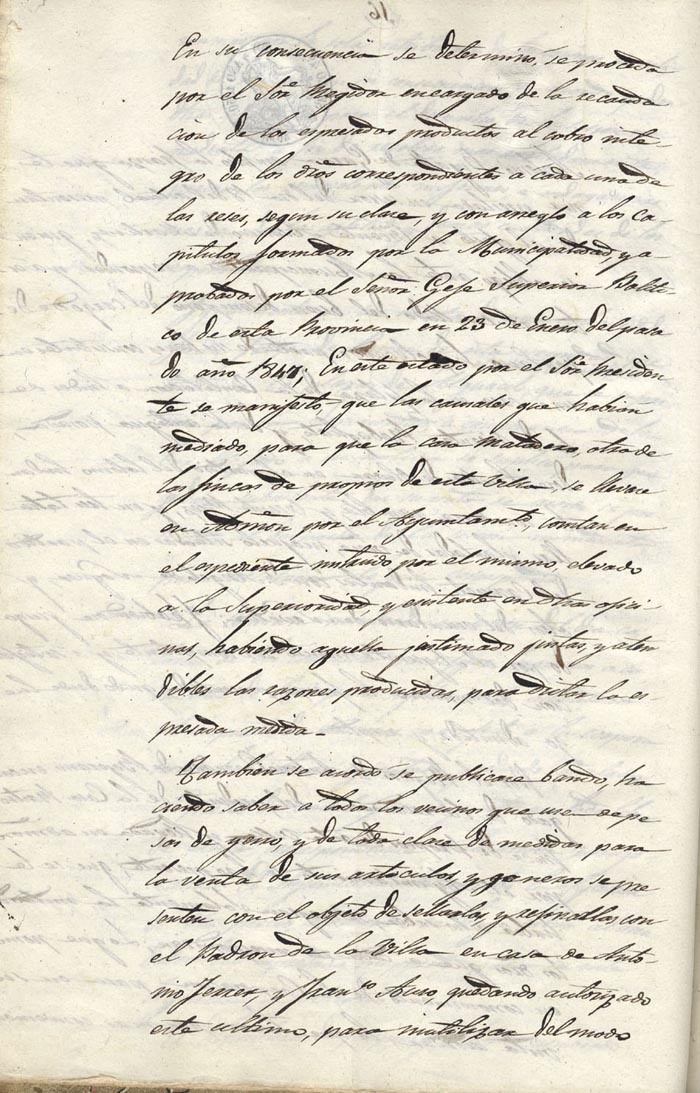 En su consecuencia se determinó, se proceda
por el Sor. Regidor encargado de la recauda
cion de los espresados productos al cobro inte-
gro de los dros correspondientes a cada una de
las reses, segun su clase, y con arreglo à los ca-
pitulos formados por la Municipalidad, y a
probados por el Señor Gefe Superior Politi-
co de esta Provincia en 23 de Enero del pasa
do año 1847; En este estado por el Sor. Presiden
te se manifestó que las causales que habian
mediado, para que la casa matadero, otra de
las fincas de propios de esta Villa, se llevase
en Admon por el Ayuntamto, constan en
el espediente instruido por el mismo, elevado
a la Superioridad, y existente en dhas ofici-
nas, habiendo aquella justimado justas, y aten
dibles las razones producidas, para dictar la es-
presada medida.
Tambien se acordó se publicase bando, ha
ciendo saber a todos los vecinos que usen de pe
sos de yerro, y de toda clase de medidas para
la venta de sus artoculos, y generos se pre
senten con el objeto de sellarlas, y refinarlas con
el Padron de la Villa en casa de Anto-
nio Ferrer, y Franco Auso quedando autorizado
este ultimo, para inutilizar del modo